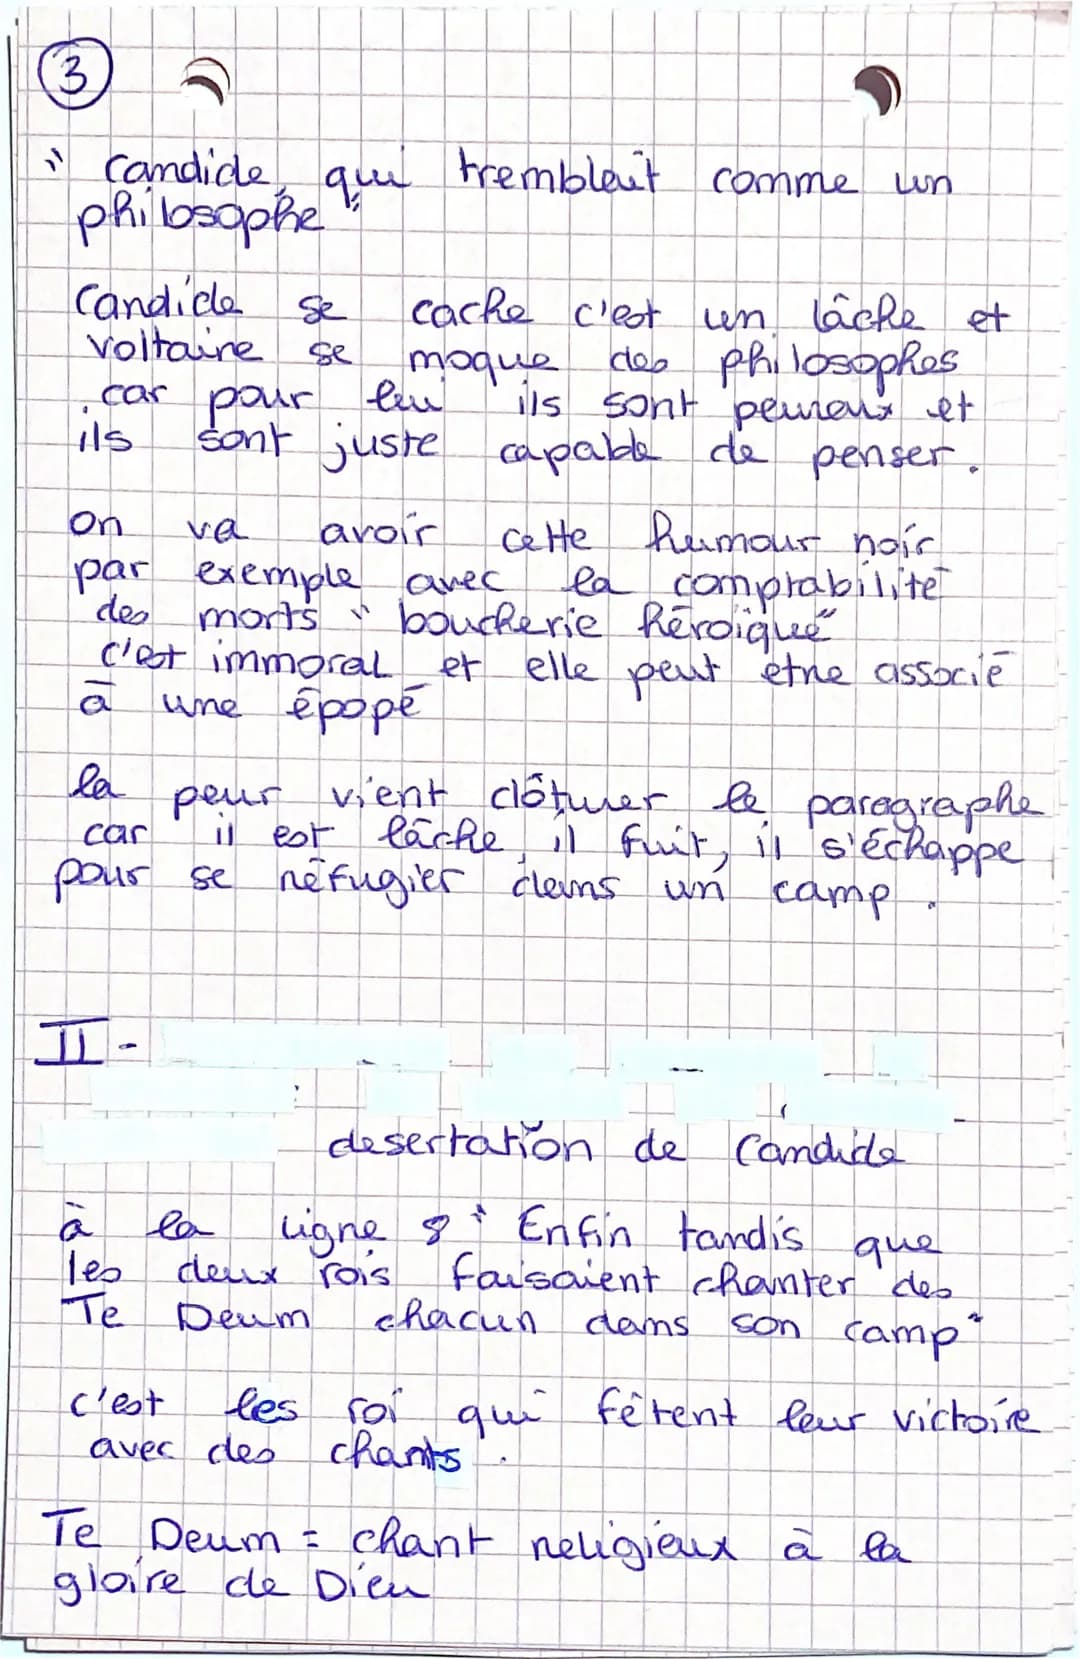 3
" Candide, qui tremblait comme un
philosophe "
Candide se cache c'est un lâche et
voltaire se moque des philosophes
car pour lui ils sont peureux et
ils sont juste capable de penser.
on va avoir cette humour noir
par exemple avec la comptabilité
des morts " boucherie héroïque "
c'est immoral et elle peut etre associé
à une épopé
la peur vient clôturer le paragraphe
car il est lâche, il fuit, il s'échappe
pour se réfugier dans un camp.
II-
desertation de Candide
à la ligne 8 " Enfin tandis que
les deux rois faisaient chanter des
Te Deum chacun dans son camp "
c'est les roi qui fêtent leur victoire
avec des chants.
Te Deum = chant religieux à la
gloire de Dieu